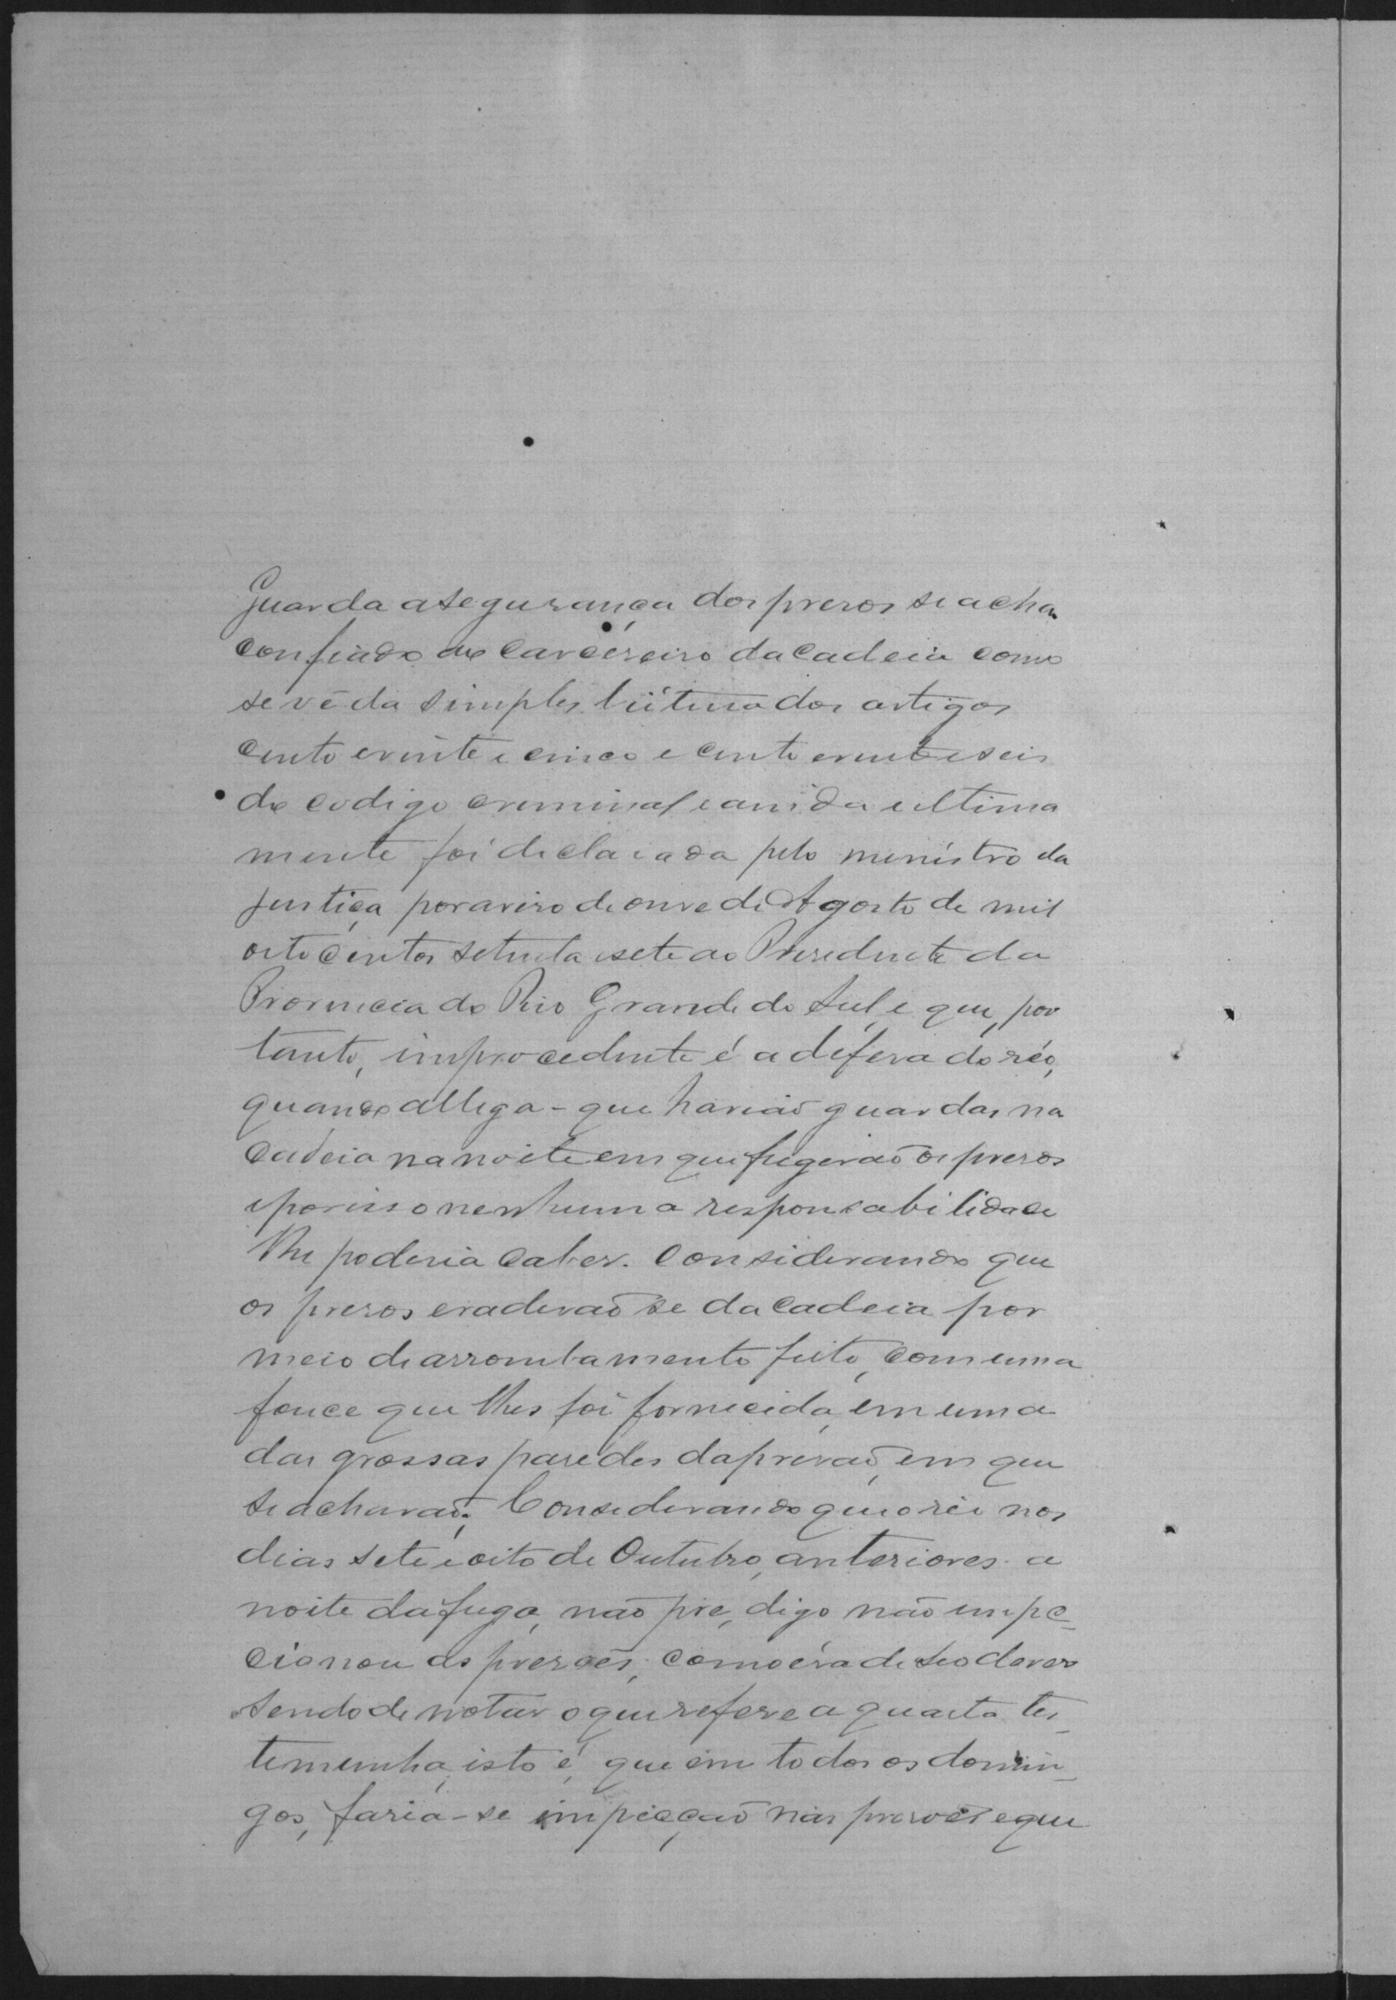 Guarda a segurança dos presos se acha
confiado ao Carcéreiro da Cadeia como
se vê da simples leitura dos artigos
cento e vinte e cinco e cento e vinte e seis
do codigo criminal e ainda ultima
mente foi declarada pelo ministro da
Justiça por aviso de onze de Agosto de mil
oito centos setenta e sete ao Presidente da
Provincia do Rio Grande do Sul, e que, por
tanto, improcedente é a defesa do réo,
quando allega - que havião guardas na
Cadeia na noite em que fugirão os presos
e por isso nenhuma responsabilidade
lhe poderia caber. Considerando que
os presos evadirão se da Cadeia por
meio de arrombamento feito, com uma
fouce que lhes foi fornecida, em uma
das grossas paredes da prisão, em que
se achavão; Considerando que o réo nos
dias sete e oito de Outubro, anteriores a
noite da fuga, não pre, digo não inspe_
cionou as prisões, como éra de seo dever
sendo de notar o que refere a quarta tes_
temunha, isto é, que em todos os domin_
gos, faria-se inspecção nas prisões e que